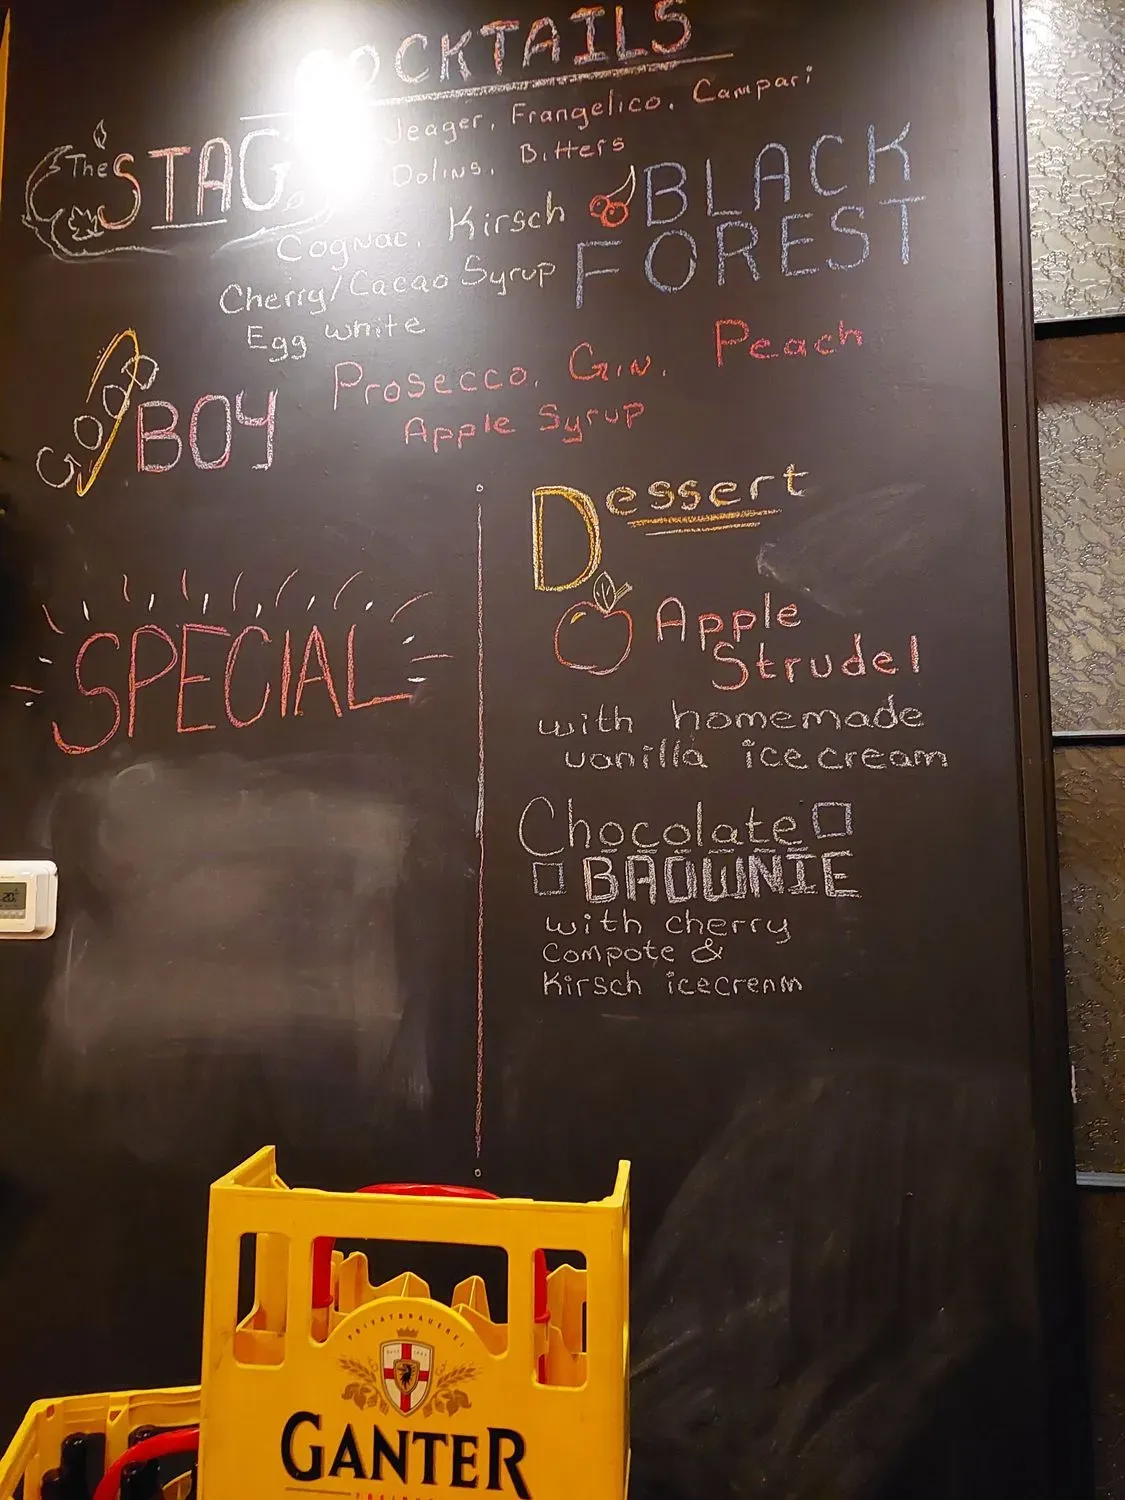 COCKTAILS
The STAG
Jeager, Frangelico, Campari
Dolins, Bitters
BLACK
FOREST
Cognac, Kirsch
Cherry/Cacao Syrup
Egg white
GOOD
BOY
Prosecco, Gin, Peach
Apple Syrup
SPECIAL
Dessert
Apple
Strudel
with homemade
vanilla icecream
Chocolate
BROWNIE
with cherry
Compote &
Kirsch icecream
20
PRIVATBRAUEREI
GANTER